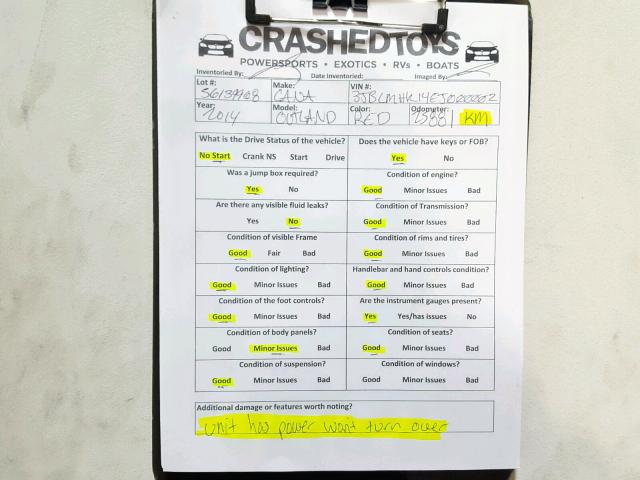 CRASHEDTOYS
POWERSPORTS • EXOTICS • RVs • BOATS
Inventoried By: Date Inventoried: Imaged By:
Lot #: Make: VIN #:
56139908 CANA 3JBLMHK14EJ000002
Year: Model: Color: Odometer:
2014 OUTLAND RED 15881 KM
What is the Drive Status of the vehicle? Does the vehicle have keys or FOB?
No Start Crank NS Start Drive Yes No
Was a jump box required? Condition of engine?
Yes No Good Minor Issues Bad
Are there any visible fluid leaks? Condition of Transmission?
Yes No Good Minor Issues Bad
Condition of visible Frame Condition of rims and tires?
Good Fair Bad Good Minor Issues Bad
Condition of lighting? Handlebar and hand controls condition?
Good Minor Issues Bad Good Minor Issues Bad
Condition of the foot controls? Are the instrument gauges present?
Good Minor Issues Bad Yes Yes/has issues No
Condition of body panels? Condition of seats?
Good Minor Issues Bad Good Minor Issues Bad
Condition of suspension? Condition of windows?
Good Minor Issues Bad Good Minor Issues Bad
Additional damage or features worth noting?
unit has power wont turn over